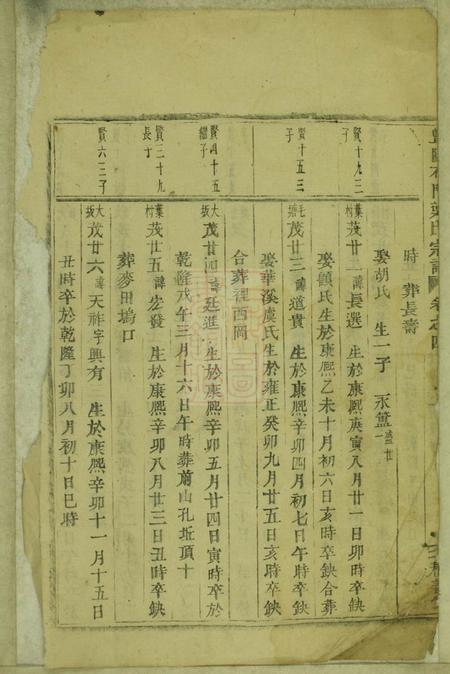 時 葬長壽
娶胡氏 生一子 永
賢十九三子
葉村 茂廿二 諱長選 生於康熙庚寅八月廿一日卯時卒缺
娶顧氏生於康熙乙未十月初六日亥時卒缺合葬
賢十五三子
毛塘 茂廿三 諱道貴 生於康熙辛卯四月初七日午時卒缺
娶華溪虞氏生於雍正癸卯九月廿五日亥時卒缺
合葬裡西岡
賢四十五繼子
大坂 茂廿四 諱廷進 生於康熙辛卯五月廿四日寅時卒於
乾隆戊午三月十六日午時葬前山孔坵頂十
賢三十九長子
葉村 茂廿五 諱宏發 生於康熙辛卯八月廿三日丑時卒缺
葬麥田塢口
賢六三子
大坂 茂廿六 諱天祚字興有 生於康熙辛卯十一月十五日
丑時卒於乾隆丁卯八月初十日巳時